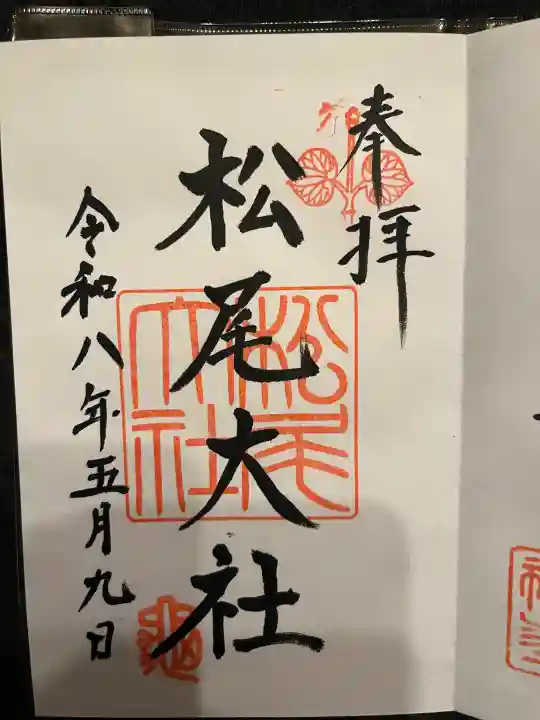 奉拝
松尾大社
松尾大社
令和八年五月九日